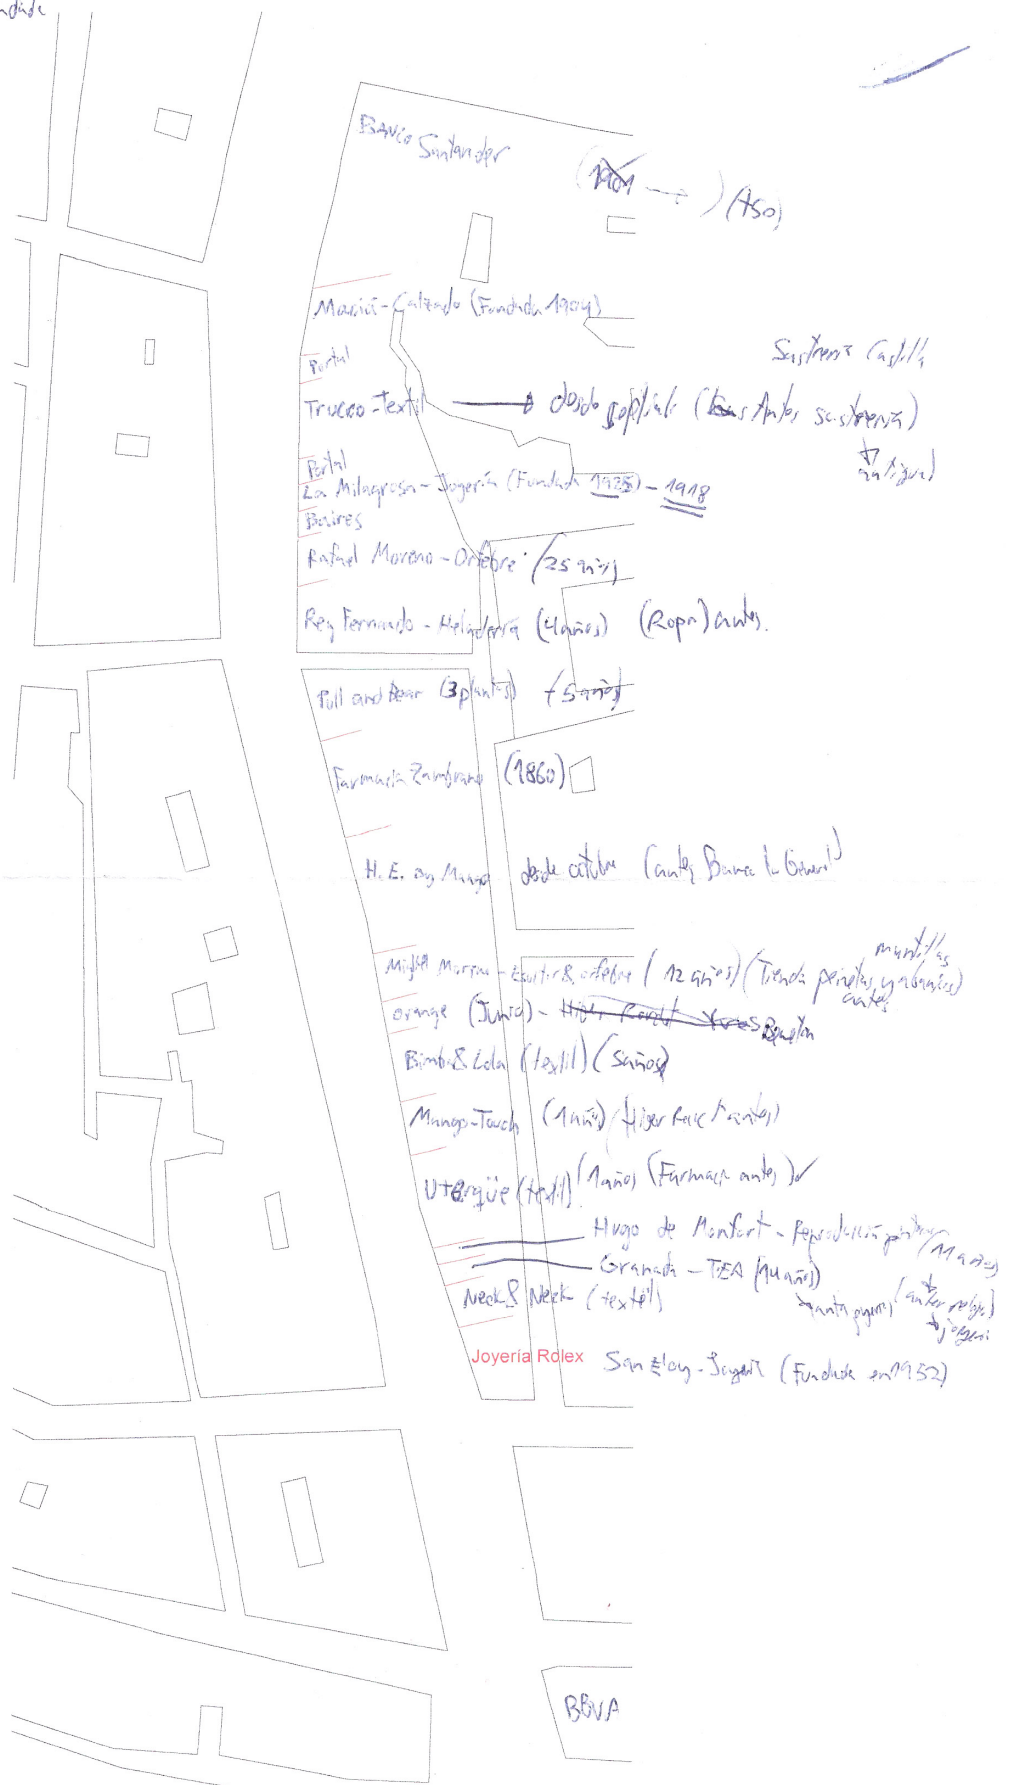 Banco Santander
(1901 → ) (ASO)
Calzado (Fundada 1904)
Sastrería Castilla
Portal
Trucco-Textil → desde (Antes sastrería)
antigua
Portal
La Milagrosa - Joyería (Fundada 1925) - 1918
Baires
Rafael Moreno - Orfebre (25 años)
Rey Fernando - Heladería (4 años) (Ropa) antes.
Pull and Bear (3 plantas) (5 años)
Farmacia Zambrano (1860)
H.E. by Mango desde octubre (antes Banca la General)
mantillas
Miguel (12 años) (Tienda peinetas y abanicos)
antes
orange (Junio) -
Bimba & Lola (textil) (5 años)
Mango-Touch (1 año) antes)
Uterqüe (textil) (1 años (Farmacia antes)
Hugo de Monfort - (11 años)
Granada - TEA (14 años)
Neck & Neck (textil)
Joyería Rolex
San Eloy - Joyería (Fundada en 1952)
BBVA